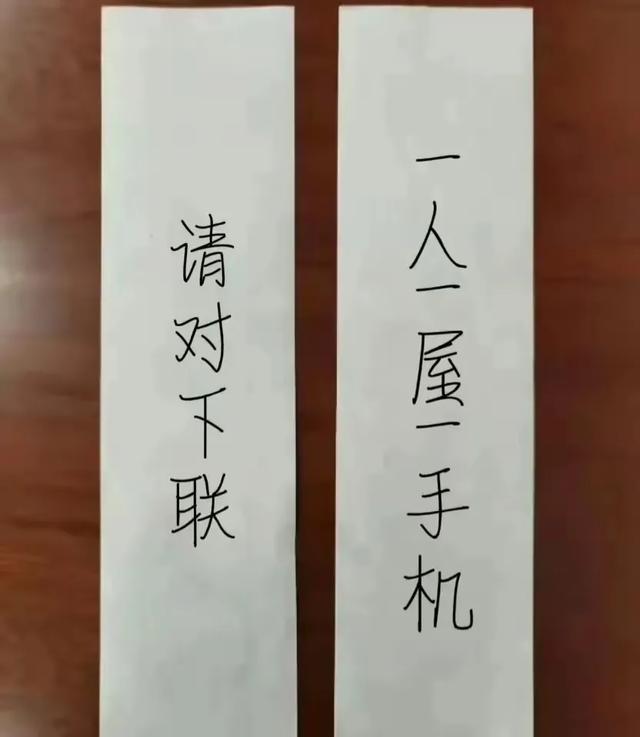 一人一屋一手机
请对下联